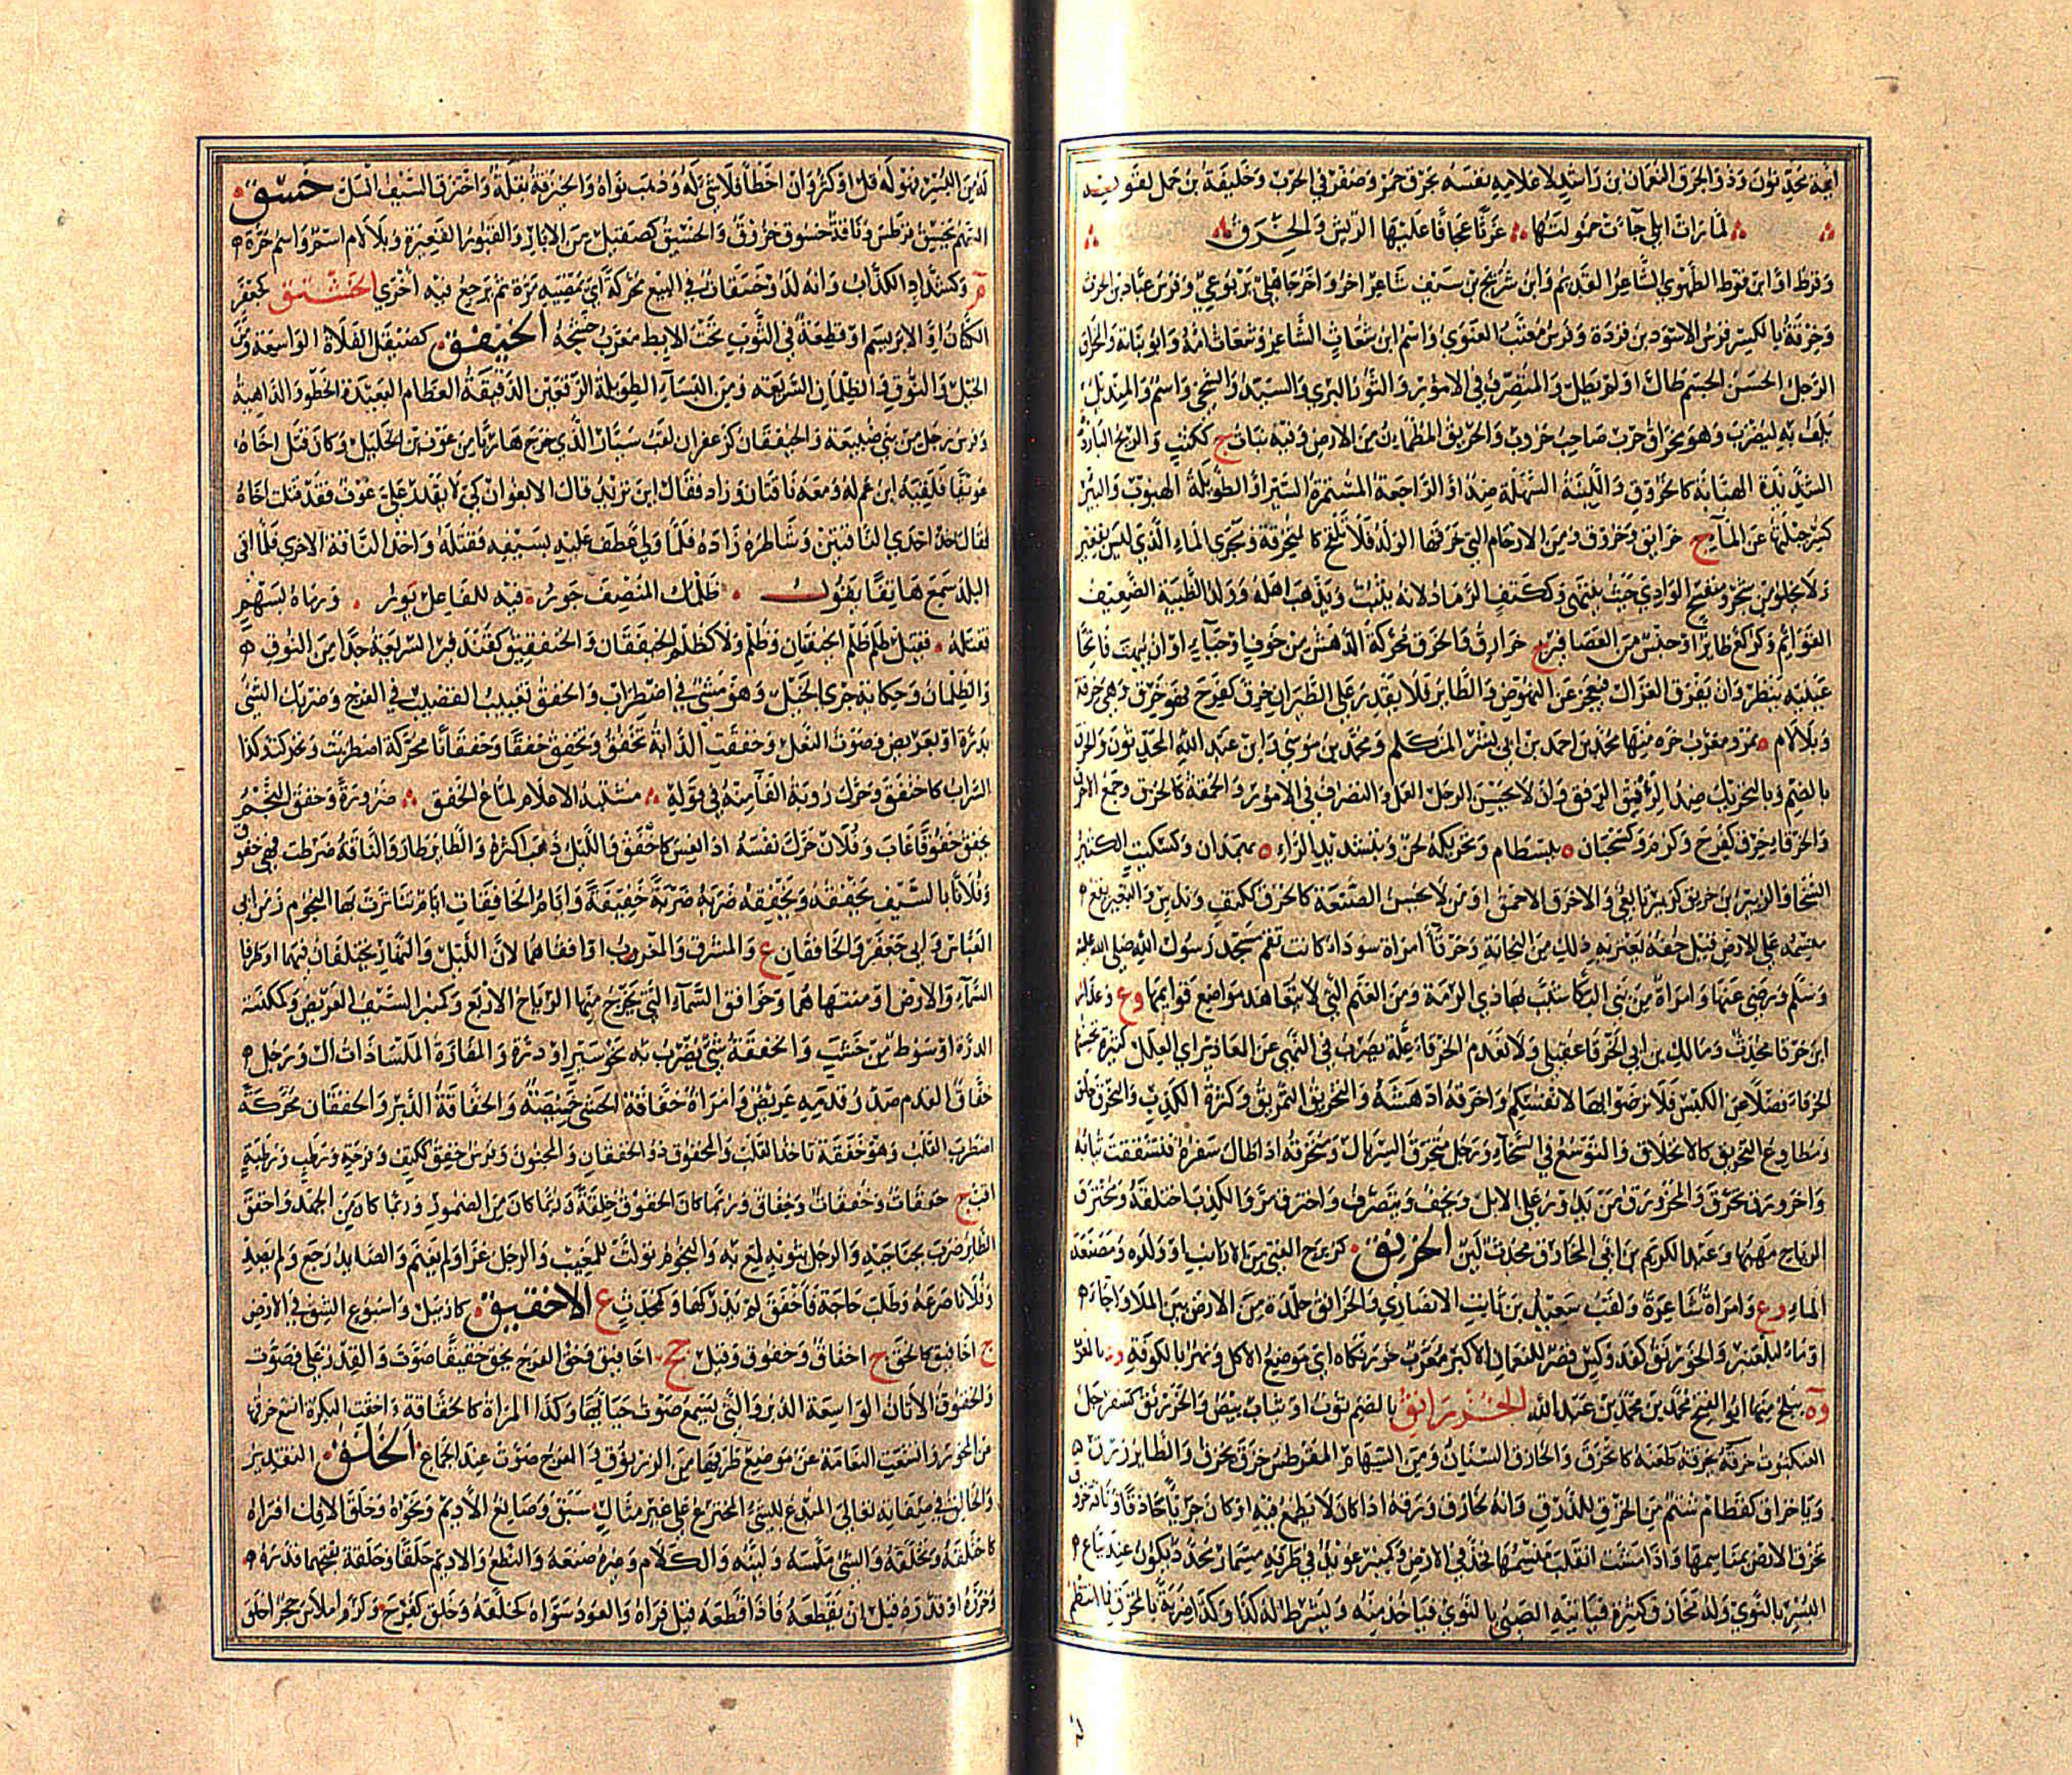 أئمة محدثون وذو الخرق النعمان بن راشد لاعلامه نفسه بخرق حمر وصفر في الحرب وخليفة بن حمل لقوله
لما رأت ابلي جاءت حمولتها غرثى عجافا عليها الريش والخرق
وقرط او ابن قرط الطهوي الشاعر القديم وابن شريح بن سيف شاعر اخر واخر جاهلي يربوعي وفرس عباد بن الحرث
وخرقة بالكسر فرس الاسود بن قردة وفرس معتب الغنوي واسم ابن شعاث الشاعر وشعاث امه وابوه نباتة والمخراق
الرجل الحسن الجسم طال او لم يطل والمتصرف في الامور والثور البري والسيد والسخي واسم والمنديل
يلف به ليضرب وهو مخراق حرب صاحب حروب والخريق المطمئن من الارض وفيه نبات ج ككتب والريح الباردة
الشديدة الهبابة كالخروق واللينة السهلة ضد او الراجعة المستمرة السير او الطويلة الهبوب والبئر
كسر جبلتها عن الماء ج خرائق وخروق ومن الارحام التي خرقها الولد فلا تلقح كالمتخرقة ومجرى الماء الذي ليس بقعير
ولا يخلو من شجر ومنفسح الوادي حيث ينتهي وككتف الرماد لانه يثبت ويذهب اهله وولد الظبية الضعيف
القوائم وكركع طائر او جنس من العصافير ج خرارق والخرق محركة الدهش من خوف او حياء او ان يبهت فاتحا
عينيه ينظر وان يفرق الغزال فيعجز عن النهوض والطائر فلا يقدر على الطيران خرق كفرح فهو خرق وهي خرقة
وبلالام ة بمرو معرب خره منها محمد بن احمد بن ابي بشر المتكلم ومحمد بن موسى وابن عبد الله المحدثون والخرق
بالضم وبالتحريك ضد الرفق وان لا يحسن الرجل العمل والتصرف في الامور والحمق كالخرق وجمع الاخرق
والخرقاء خرق كفرح وكرم وكسحبان ة ببسطام وتحريكه لحن وبتشديد الراء ة بهمدان وكسكيت الكثير
السخاء والزبير بن خريق كزبير تابعي والاخرق الاحمق او من لا يحسن الصنعة كالخرق ككتف وندس والبعير يقع
منسمه على الارض قبل خفه يعتريه ذلك من النجابة وخرقاء امرأة سوداء كانت تقم مسجد رسول الله صلى الله عليه
وسلم ورضي عنها وامرأة من بني البكاء شبب بها ذو الرمة ومن الغنم التي لا تتعاهد مواضع قوائمها وع وعذار
ابن خرقا محدث ومالك بن ابي الخرقا عقيلي ولا تعدم الخرقاء علة يضرب في النهي عن المعاذير اي العلل كثيرة تحسنها
الخرقاء فضلا عن الكيس فلا ترضوا بها لانفسكم واخرقه ادهشه والتخريق التمزيق وكثرة الكذب والتخرق خلق
ومطاوع التخريق كالانخراق والتوسع في السخاء ورجل متخرق السربال ومنخرقه اذا طال سفره فتشققت ثيابه
واخرورق تخرق والمخرورق من يدور على الابل ويخف ويتصرف واخترق مر والكذب اختلقه ومخترق
الرياح مهبها وعبد الكريم بن ابي المخارق محدث لين الخرنق كزبرج الفتي من الارانب او ولده ومصنعة
الماء وع وامرأة شاعرة ولقب سعيد بن ثابت الانصاري والخرانق جلدة من الارض بين الملا واجاء
او ماء لبلعنبر والخورنق كفدوكس قصر للنعمان الاكبر معرب خورنكاه اي موضع الاكل ونهر بالكوفة ود بالغرب
وة ببلخ منها ابو الفتح محمد بن محمد بن عبد الله الخزرانق بالضم ثوب او ثياب بيض والخزرنق كسفرجل
العنكبوت خزقه يخزقه طعنه فانخزق والخازق السنان ومن السهام المقرطس خزق يخزق والطائر زرق
ويا خزاق كقطام شتم من الخزق للذرق وانه لخازق ورقه اذا كان لا يطمع فيه او كان جريا حاذقا وناقة خزوق
تخزق الارض بمناسمها واذا مشت انقلب منسمها فخد في الارض وكمنبر عويد في طرفه مسمار محدد يكون عند بياع
البسر بالنوى وله مخازق كثيرة فيأتيه الصبي بالنوى فيأخذه منه ويشرط له كذا وكذا ضربة بالمخزق فما انتظم
له من البسر فهو له قل او كثر وان اخطأ فلا شيء له وذهب نواه والخيزقة بقلة واخترق السيف انسل خسق
السهم يخسق قرطس وناقة خسوق خزوق والخيسق كصيقل من الآبار والقبور القعيرة وبلالام اسم واسم حرة م
م وكشداد الكذاب وانه لذو خسقات في البيع محركة اي يمضيه مرة ثم يرجع فيه اخرى الخشتق كجعفر
الكتان او الابريسم او قطعة في الثوب تحت الابط معرب خشتجه الخيفق كصيقل الفلاة الواسعة ومن
الخيل والنوق والظلمان السريعة ومن النساء الطويلة الرفغين الدقيقة العظام البعيدة الخطو والداهية
وفرس رجل من بني ضبيعة والخيفقان كزعفران لقب سيار الذي خرج هاربا من عوف بن الخليل وكان قتل اخاه
عويفا فلقيه ابن عم له ومعه ناقتان وزاد فقال اين تريد قال الابعوان كي لا يقدر علي عوف فقد قتلت اخاه
فقال خذ احدي الناقتين وشاطره زاده فلما ولي عطف عليه بسيفه فقتله واخذ الناقة الاخري فلما اتى
البلد سمع هاتفا يقول ظلمك المنصف جور فيه للفاعل بور ورماه بسهم
فقتله فقيل ظلم ظلم الخيفقان وظلم ولا كظلم الخيفقان والخنفقيق كقندفير السريعة جدا من النوق
والظلمان وحكاية جري الخيل وهو مشي في اضطراب والخفق تغييب القضيب في الفرج وضربك الشيء
بدرة او بعريض وصوت النعل وخفقت الراية تخفق وتخفق خفقا وخفقانا محركة اضطربت وتحركت وكذا
السراب كاختفق وحرك رؤبة الفاء منه في قوله مشتبه الاعلام لماع الخفق ضرورة وخفق النجم
يخفق خفوقا غاب وفلان حرك نفسه اذا نعس كاخفق والليل ذهب اكثره والطائر طار والناقة ضرطت فهي خفوق
وفلانا بالسيف يخفقه ويخفقه ضربه ضربة خفيفة وايام الخافقات ايام تناثرت بها النجوم زمن ابي
العباس وابي جعفر والخافقان ع والمشرق والمغرب او افقاهما لان الليل والنهار يختلفان فيهما او طرفا
السماء والارض او منتهاهما وخوافق السماء التي يخرج منها الرياح الاربع وكمنبر السيف العريض وكمكنسة
الدرة او سوط من خشب والخفقة شيء يضرب به نحو سير او درة والمفازة الملساء ذات ال ورجل
خفاق القدم صدر قدميه عريض وامرأة خفاقة الحشى خميصته والخفاقة الدبر والخفقان محركة
اضطراب القلب وهو خفقة تأخذ القلب والمخفوق ذو الخفقان والمجنون وفرس خفق ككتف وفرحة ورطب ورطبة
اقب ج خفقات وخفقات وخفاق وربما كان الخفوق خلقة وربما كان من الضمور وربما كان من الجهد واخفق
الطائر ضرب بجناحيه والرجل بثوبه لمع به والنجوم تولت للمغيب والرجل غزا ولم يغنم والصائد رجع ولم يصد
وفلانا صرعه وطلب حاجة فاخفق لم يدركها وكمحدث ع الاخقيق كازميل واسبوع الشق في الارض
ج اخاقيق كالخق ج اخقاق وخقوق وقيل جج اخاقيق وخق الفرج يخق خقيقا صوت والقدر غلى فصوت
والخقوق الاتان الواسعة الدبر والتي يسمع صوت حيائها وكذا المرأة كالخقاقة واخقت البكرة اتسع خرقها
عن المحور واتسعت النعامة عن موضع طرفها من الزرنوق والفرج صوت عند الجماع الخلق التقدير
والخالق في صفاته تعالى المبدع للشيء المخترع على غير مثال سبق وصانع الاديم ونحوه وخلق الافك افتراه
كاختلقه وتخلقه والشيء ملسه ولينه والكلام وغيره صنعه والنطع والاديم خلقا وخلقة بفتحهما قدره
وحزره او قدره قبل ان يقطعه فاذا قطعه قيل فراه والعود سواه كخلقه وخلق كفرح وكرم املاس حجر اخلق